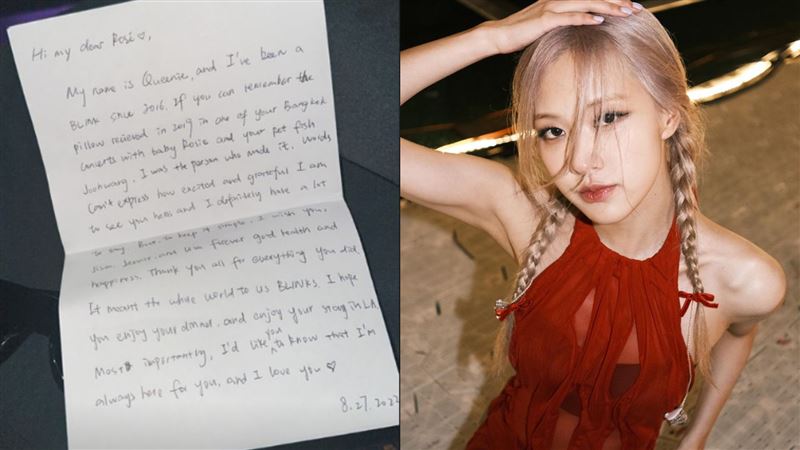 Hi my dear Rosé♡,
My name is Queenie, and I've been a
BLINK since 2016. If you can remember the
pillow recieved in 2019 in one of your Bangkok
concerts with baby Rosie and your pet fish
Joohwang, I was the person who made it. Words
Can't express how excited and grateful I am
to see you here and I definitely have a lot
to say. But to keep it simple, I wish you,
Jisoo, Jennie, and Lisa forever good health and
happiness. Thank you all for everything you did.
It meant the whole world to us BLINKS. I hope
you enjoy your dinner, and enjoy your stay in LA.
Most importantly, I'd like you to know that I'm
always here for you, and I love you ♡
8.27.2022